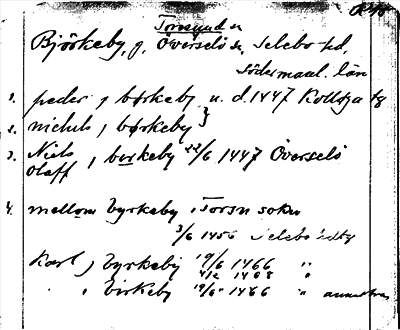 Torsund sn
Björkeby, g. Överselö sn, Selebo hd,
Södermanl. län
1. peder j børkeby u. d. 1447
2. nichuls j børkeby }
3. Niels j borkeby 22/6 1447 Överselö
Olaff
4. mellom byrkeby i Torsn sokn
3/6 1456 Selebo hdtg
Karl j byrkeby 19/6 1466 "
4/2 1468 "
" i Birkeby 19/6 1466 "